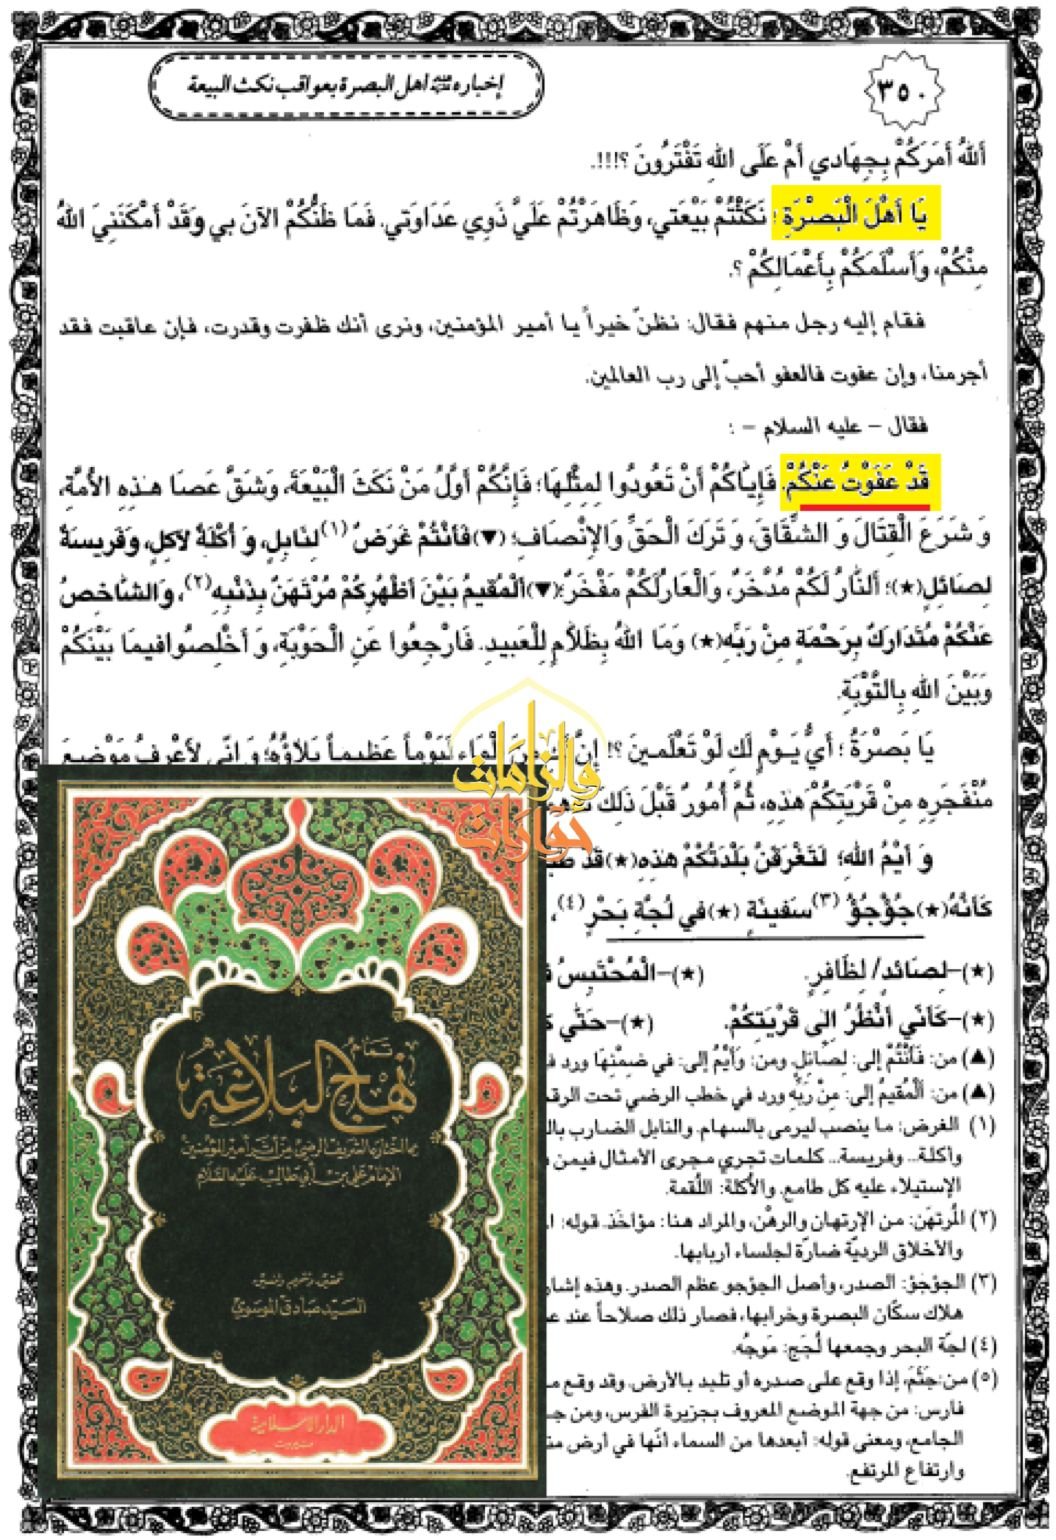 ٣٥٠
إخباره ﷺ أهل البصرة بعواقب نكث البيعة
أَللهُ أَمَرَكُمْ بِجِهَادي أَمْ عَلَى اللهِ تَفْتَرُونَ ؟!!!.
يَا أَهْلَ الْبَصْرَةِ ؛ نَكَثْتُمْ بَيْعَتي، وَظَاهَرْتُمْ عَلَيَّ ذَوِي عَدَاوَتي. فَمَا ظَنُّكُمْ الآنَ بي وَقَدْ أَمْكَنَنِيَ اللهُ
مِنْكُمْ، وَأَسْلَمَكُمْ بِأَعْمَالِكُمْ ؟.
فقام إليه رجل منهم فقال: نظنّ خيراً يا أمير المؤمنين، ونرى أنك ظفرت وقدرت، فإن عاقبت فقد
أجرمنا، وإن عفوت فالعفو أحبّ إلى رب العالمين.
فقال – عليه السلام – :
قَدْ عَفَوْتُ عَنْكُمْ. فَإِيَّاكُمْ أَنْ تَعُودُوا لِمِثْلِهَا؛ فَإِنَّكُمْ أَوَّلُ مَنْ نَكَثَ الْبَيْعَةَ، وَشَقَّ عَصَا هٰذِهِ الأُمَّةِ،
وَ شَرَعَ الْقِتَالَ وَ الشِّقَاقَ، وَ تَرَكَ الْحَقَّ وَالإِنْصَافِ؛ (▼) فَأَنْتُمْ غَرَضٌ (١) لِنَابِلٍ، وَ أُكْلَةٌ لآكِلٍ، وَفَريسَةٌ
لِصَائِلٍ (★)؛ أَلنَّارُ لَكُمْ مُدَّخَرٌ، وَالْعَارُ لَكُمْ مَفْخَرٌ؛ (▼) اَلْمُقيمُ بَيْنَ أَظْهُرِكُمْ مُرْتَهَنٌ بِذَنْبِهِ (٢)، وَالشَّاخِصُ
عَنْكُمْ مُتَدَارَكٌ بِرَحْمَةٍ مِنْ رَبِّهِ (★) وَمَا اللهُ بِظَلاَّمٍ لِلْعَبيدِ. فَارْجِعُوا عَنِ الْحَوْبَةِ، وَ أَخْلِصُوا فيمَا بَيْنَكُمْ
وَبَيْنَ اللهِ بِالتَّوْبَةِ.
يَا بَصْرَةُ ؛ أَيُّ يَوْمٍ لَكِ لَوْ تَعْلَمينَ ؟! إِنَّ لَكِ مِنَ الْمَاءِ لَيَوْماً عَظيماً بَلاَؤُهُ؛ وَ إِنّي لأَعْرِفُ مَوْضِعَ
مُنْفَجَرِهِ مِنْ قَرْيَتِكُمْ هٰذِهِ، ثُمَّ أُمُورٌ قَبْلَ ذٰلِكَ
وَ أَيْمُ اللهِ؛ لَتَغْرَقَنَّ بَلْدَتُكُمْ هٰذِهِ (★)
كَأَنَّهُ (★) جُؤْجُؤُ (٣) سَفينَةٍ (★) في لُجَّةِ بَحْرٍ (٤)،
(★)–لِصَائِدٍ/ لِظَافِرٍ. (★)–الْمُحْتَبِسُ
(★)–كَأَنّي أَنْظُرُ إِلى قَرْيَتِكُمْ. (★)–حَتّٰى
(▲) من: فَأَنْتُمْ إلى: لِصَائِلٍ. ومن: وَأَيْمُ إلى: في ضِمْنِهَا ورد
(▲) من: اَلْمُقيمُ إلى: مِنْ رَبِّهِ ورد في خطب الرضي تحت
(١) الغرض: ما ينصب ليرمى بالسهام. والنابل الضارب
وأكلة... وفريسة... كلمات تجري مجرى الأمثال فيمن
الإستيلاء عليه كل طامع. والأُكلة: اللُقمة.
(٢) المُرتهَن: من الإرتهان والرهْن، والمراد هنا: مؤاخَذ. قوله:
والأخلاق الرديّة ضارّة لجلساء أربابها.
(٣) الجؤجؤ: الصدر، وأصل الجؤجؤ عظم الصدر. وهذه
هلاك سكّان البصرة وخرابها، فصار ذلك صلاحاً عند
(٤) لجّة البحر وجمعها لُجَج: مَوجُه.
(٥) من: جَثَمَ، إذا وقع على صدره أو تلبد بالأرض. وقد وقع
فارس: من جهة الموضع المعروف بجزيرة الفرس، ومن
الجامع، ومعنى قوله: أبعدها من السماء أنّها في أرض
وارتفاع المرتفع.
حوارات
والزامات
تمام
نهج البلاغة
مما اختاره الشريف الرضي من أثر أمير المؤمنين
الإمام علي بن أبي طالب عليه السلام
تحقيق وتتميم وتنسيق
السيد صادق الموسوي
الدار الإسلامية
بيروت